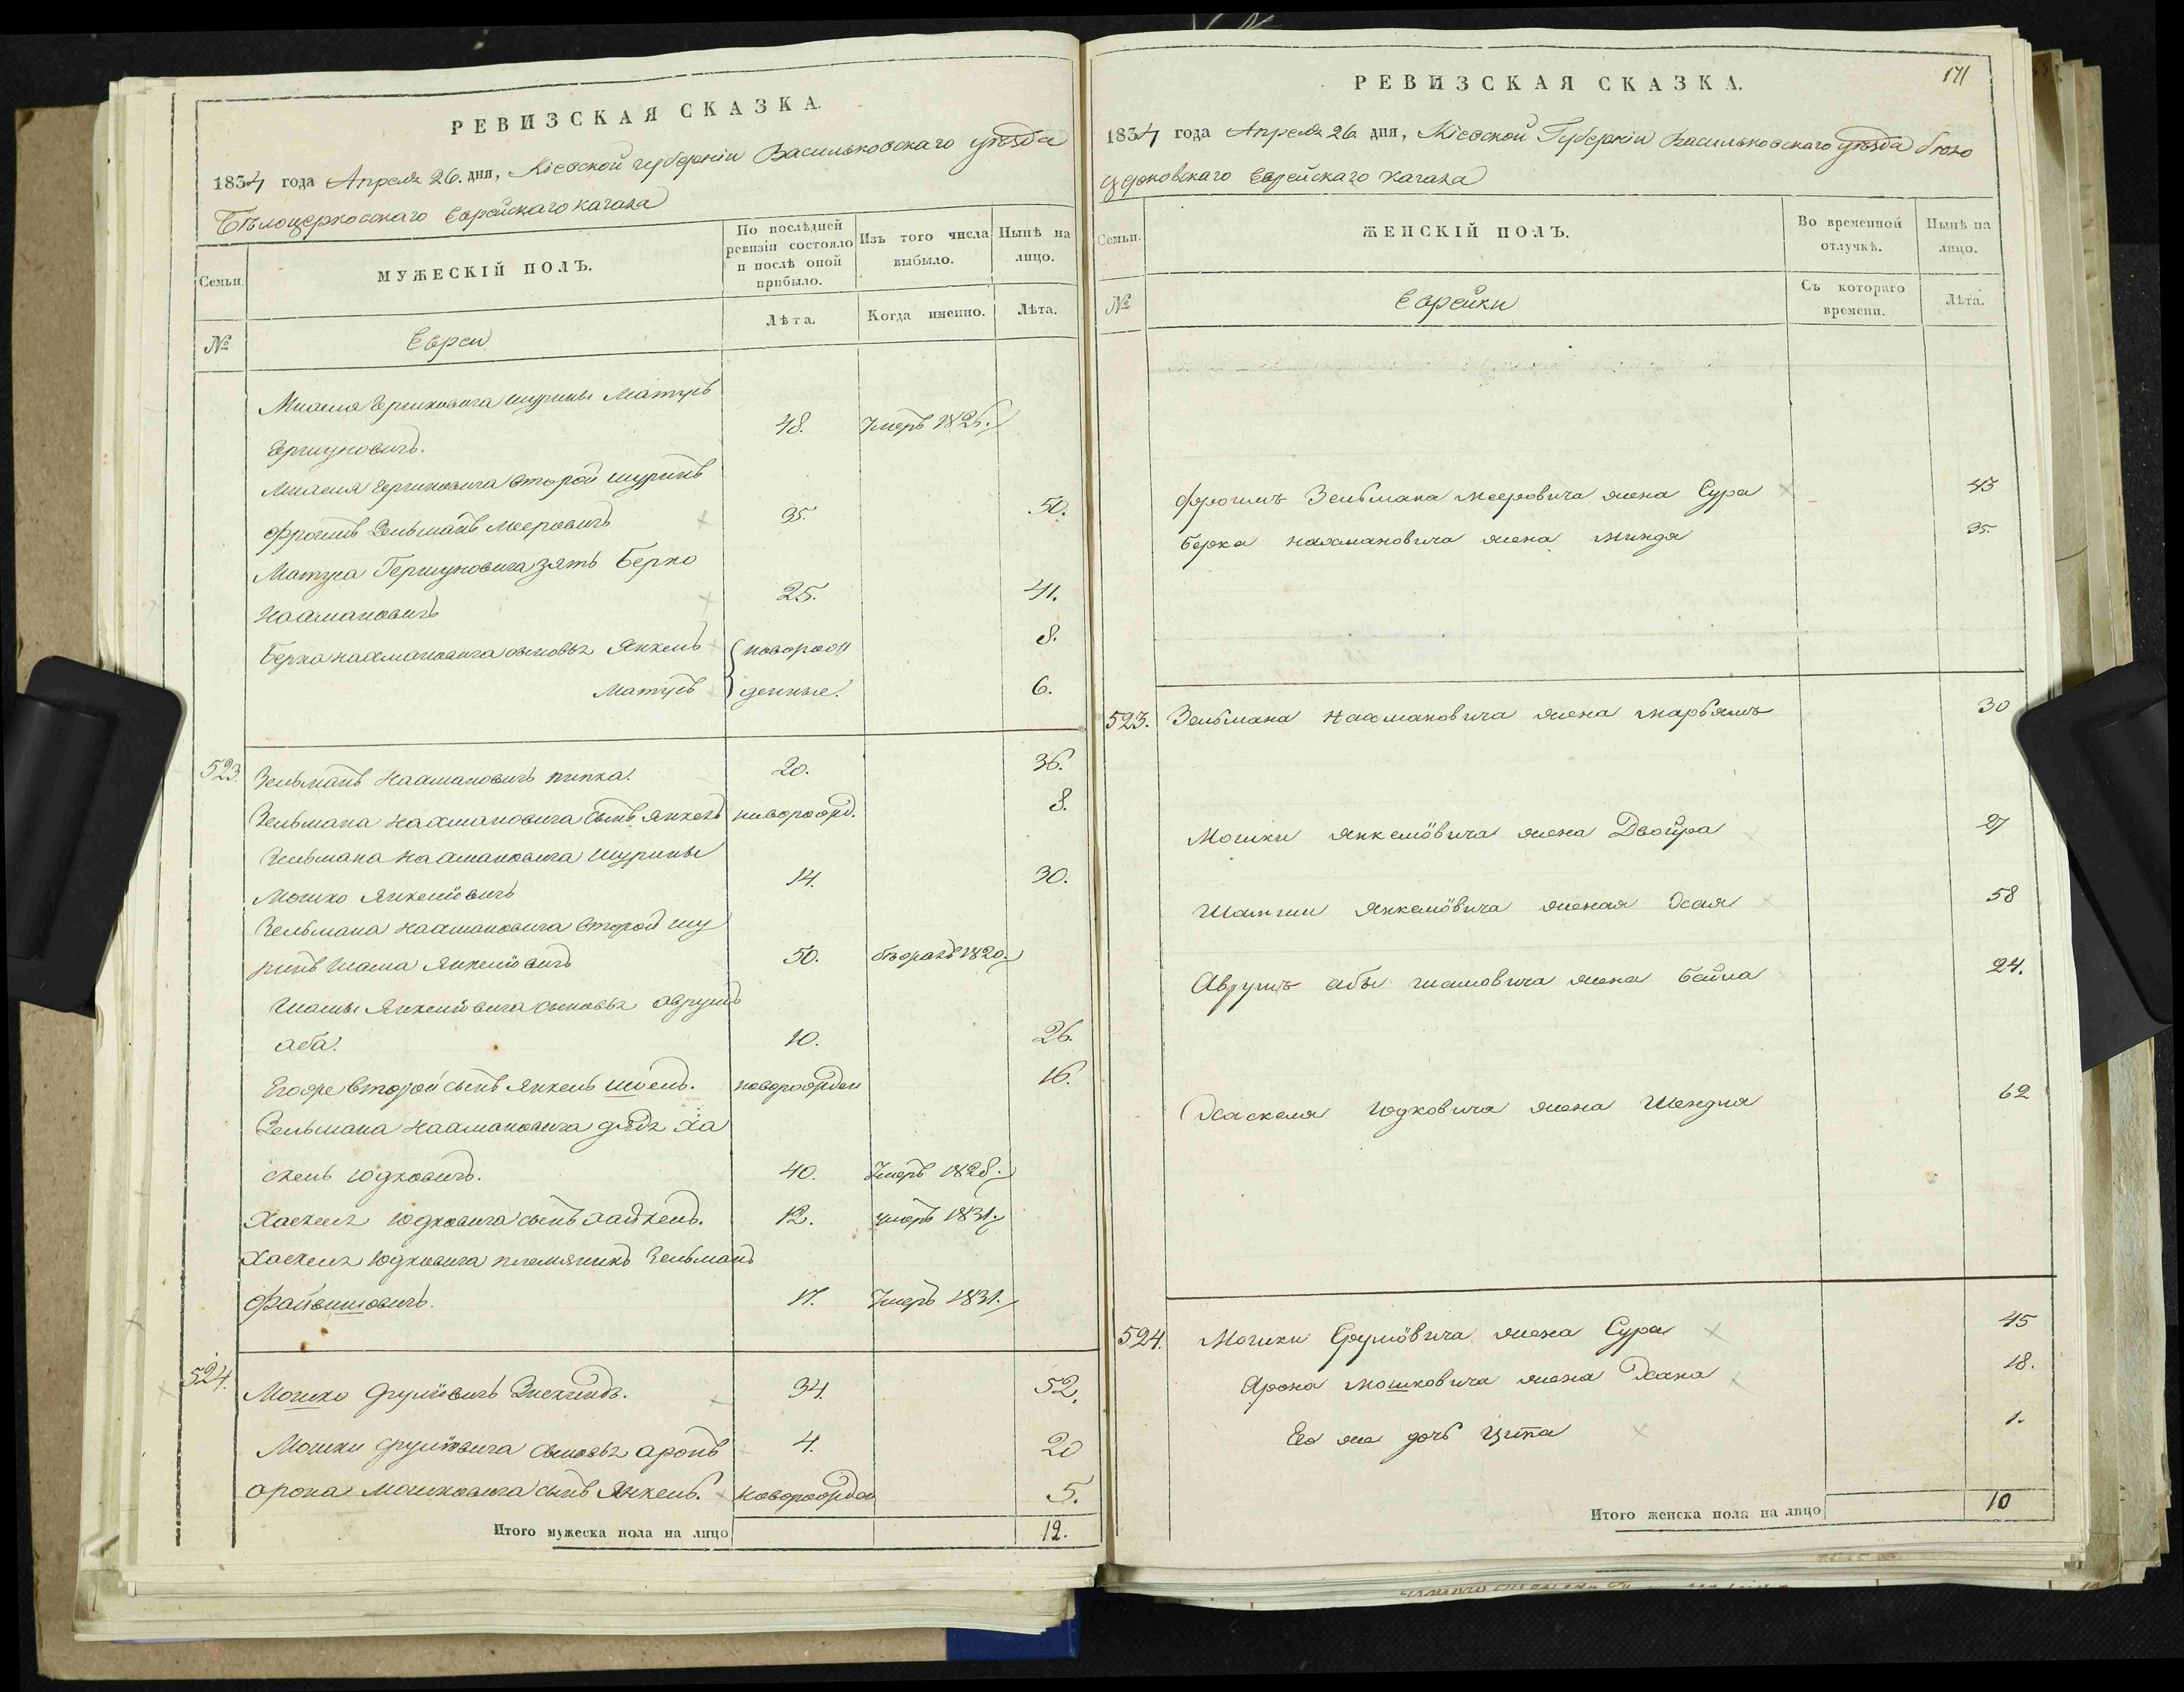 РЕВИЗСКАЯ СКАЗКА.
1834 года Апреля 26. дня, Кіевской губерніи Васильковскаго уѣзда
Бѣлоцерковскаго Еврейскаго кагала
Семьи.
МУЖЕСКІЙ ПОЛЪ.
По послѣдней ревизіи состояло и послѣ оной прибыло.
Изъ того числа выбыло.
Нынѣ на лицо.
№
Евреи
Лѣта.
Когда именно.
Лѣта.
шурины Матусъ
Гершуновичъ. 48. Умеръ 1826.
второй шуринъ
Фроимъ Зельманъ Мееровичъ 35. 50.
Матуса Гершуновича зять Берко
Нахмановичъ 25. 41.
Берка Нахмановича сыновья Янкель новорож 8.
Матусъ денные. 6.
523. Зельманъ Нахмановичъ 20. 36.
Зельмана Нахмановича сынъ Янкель новорожд. 8.
Зельмана Нахмановича шурины
Мошко Янкеліовичъ 14. 30.
Зельмана Нахмановича второй шу
ринъ Шама Янкеліовичъ 50. 1820.
Шамы Янкеліовича сыновья Аврумъ
аба. 10. 26.
Егоже второй сынъ Янкель новорожден 16.
Зельмана Нахмановича дядя Ха
скель Юдковичъ. 40. Умеръ 1828.
Хаскеля Юдковича сынъ 12. умеръ 1831.
Хаскеля Юдковича племяникъ Зельманъ
Файвишовичъ. 17. Умеръ 1831.
524. Мошко Сруліовичъ 34. 52.
Мошки Сруліовича сыновья Аронъ 4. 20
Арона Мошковича сынъ Янкель. новорожден 5.
Итого мужеска пола на лицо 12.
171
РЕВИЗСКАЯ СКАЗКА.
1834 года Апреля 26 дня, Кіевской Губерніи Васильковскаго уѣзда бѣло
церковскаго Еврейскаго кагала
Семьи.
ЖЕНСКІЙ ПОЛЪ.
Во временной отлучкѣ.
Нынѣ на лицо.
№
Еврейки
Съ котораго времени.
Лѣта.
Фроимъ Зельмана Мееровича жена Сура 43
Берка Нахмановича жена Миндя 35.
523. Зельмана Нахмановича жена Марьямъ 30
Мошки Янкеліовича жена Двойра 27
Янкеліовича Хая 58
Аврумъ абы Шамовича жена Бейла 24.
Хаскеля Юдковича жена Шендля 62
524. Мошки Сруліовича жена Сура 45
Арона Мошковича жена Хана 18.
Ео же дочь Ципа 1.
Итого женска пола на лицо 10